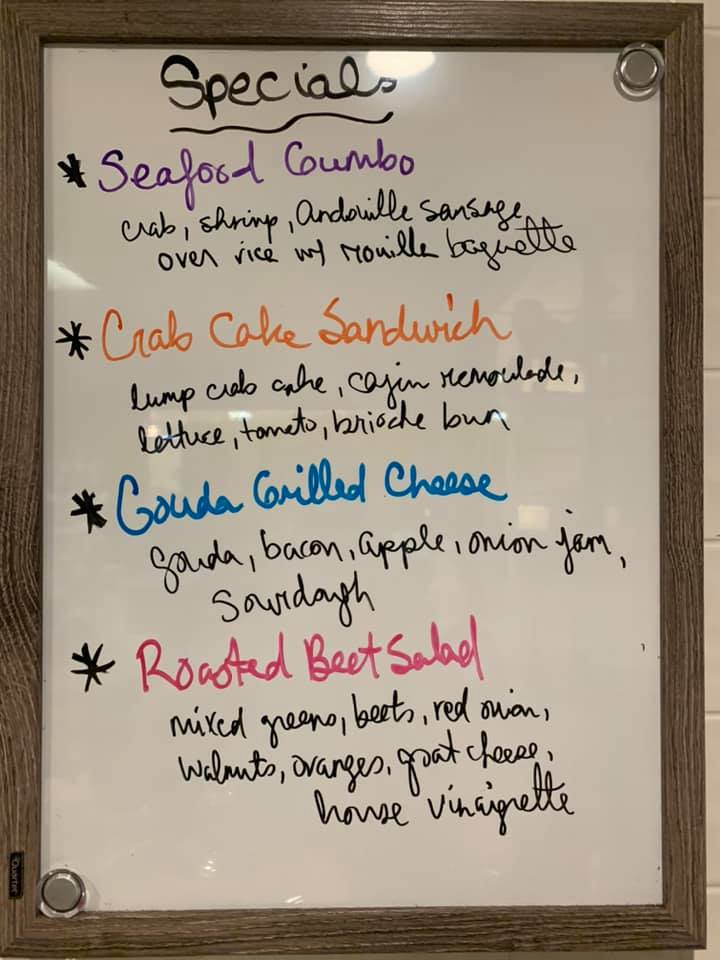 Specials
* Seafood Gumbo
crab, shrimp, Andouille sausage
over rice w/ rouille baguette
* Crab Cake Sandwich
lump crab cake, cajun remoulade,
lettuce, tomato, brioche bun
* Gouda Grilled Cheese
gouda, bacon, apple, onion jam,
Sourdough
* Roasted Beet Salad
mixed greens, beets, red onion,
walnuts, oranges, goat cheese,
house vinaigrette
Quartet